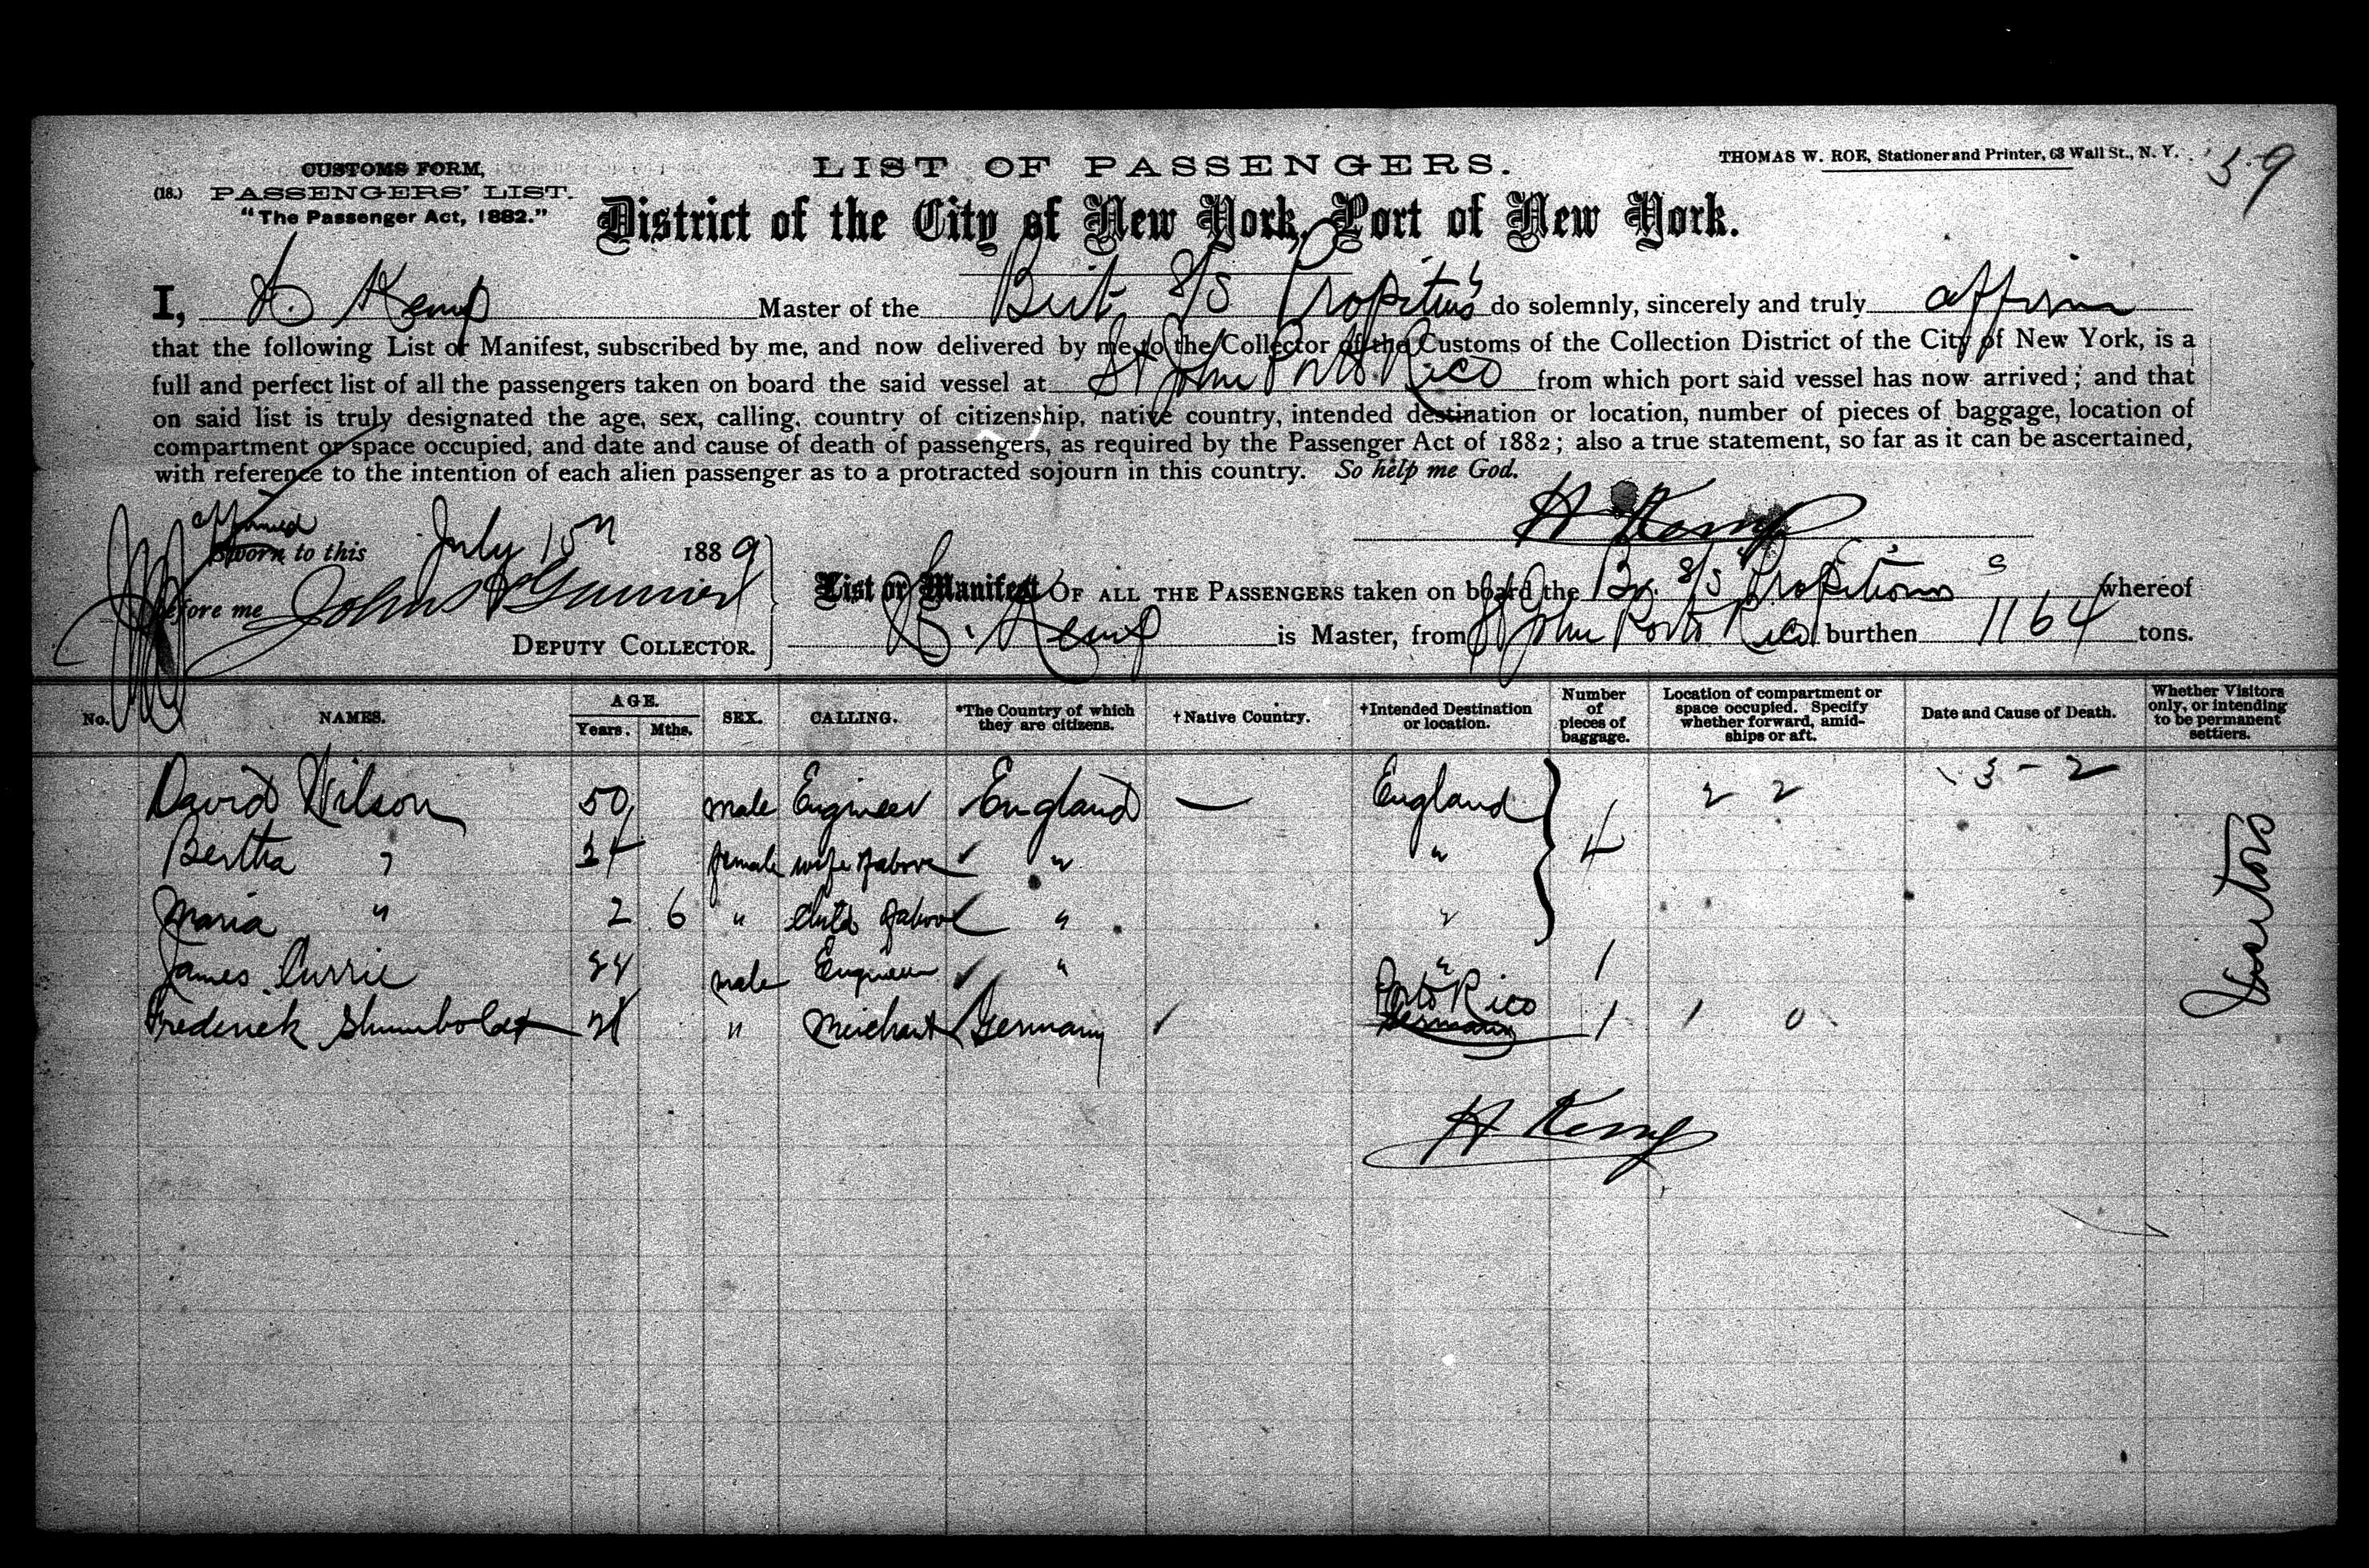 CUSTOMS FORM,
(18.) PASSENGERS' LIST.
"The Passenger Act, 1882."
LIST OF PASSENGERS.
THOMAS W. ROE, Stationer and Printer, 63 Wall St., N. Y.
59
District of the City of New York, Port of New York.
I, H. Kemp Master of the Brit S/S Propitious do solemnly, sincerely and truly affirm
that the following List or Manifest, subscribed by me, and now delivered by me to the Collector of the Customs of the Collection District of the City of New York, is a
full and perfect list of all the passengers taken on board the said vessel at St John Porto Rico from which port said vessel has now arrived; and that
on said list is truly designated the age, sex, calling, country of citizenship, native country, intended destination or location, number of pieces of baggage, location of
compartment or space occupied, and date and cause of death of passengers, as required by the Passenger Act of 1882; also a true statement, so far as it can be ascertained,
with reference to the intention of each alien passenger as to a protracted sojourn in this country. So help me God.
H Kemp
affirmed
Sworn to this July 15th 1889
before me John
DEPUTY COLLECTOR.
List or Manifest OF ALL THE PASSENGERS taken on board the Br. S/S Propitious whereof
H. Kemp is Master, from St John Porto Rico burthen 1164 tons.
No. NAMES. AGE. Years. Mths. SEX. CALLING. *The Country of which they are citizens. †Native Country. †Intended Destination or location. Number of pieces of baggage. Location of compartment or space occupied. Specify whether forward, amidships or aft. Date and Cause of Death. Whether Visitors only, or intending to be permanent settlers.
David Wilson 50 male Engineer England — England 4 2 2 3 - 2
Bertha " 34 female wife of above " "
Maria " 2 6 " Child of above " "
James Currie male Engineer " " 1
Frederick Shumboldt " Merchant Germany Porto Rico Germany 1 1 0
Visitors
H Kemp